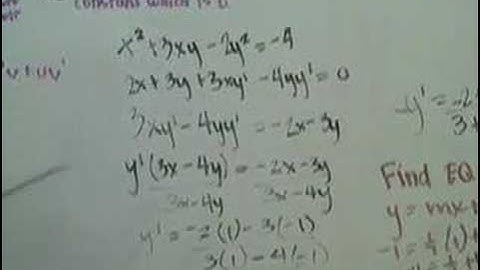 constant which is 0
x² + 3xy - 2y² = -4
2x + 3y + 3xy' - 4yy' = 0
3xy' - 4yy' = -2x - 3y
y'(3x - 4y) = -2x - 3y
3x - 4y 3x - 4y
y' = -2(1) - 3(-1)
3(1) - 4(-1)
y' = -2
3
Find EQ
y = mx +